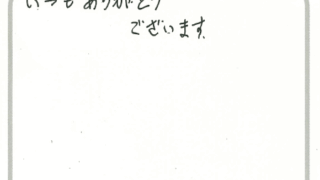 いつもありがとう
ございます。